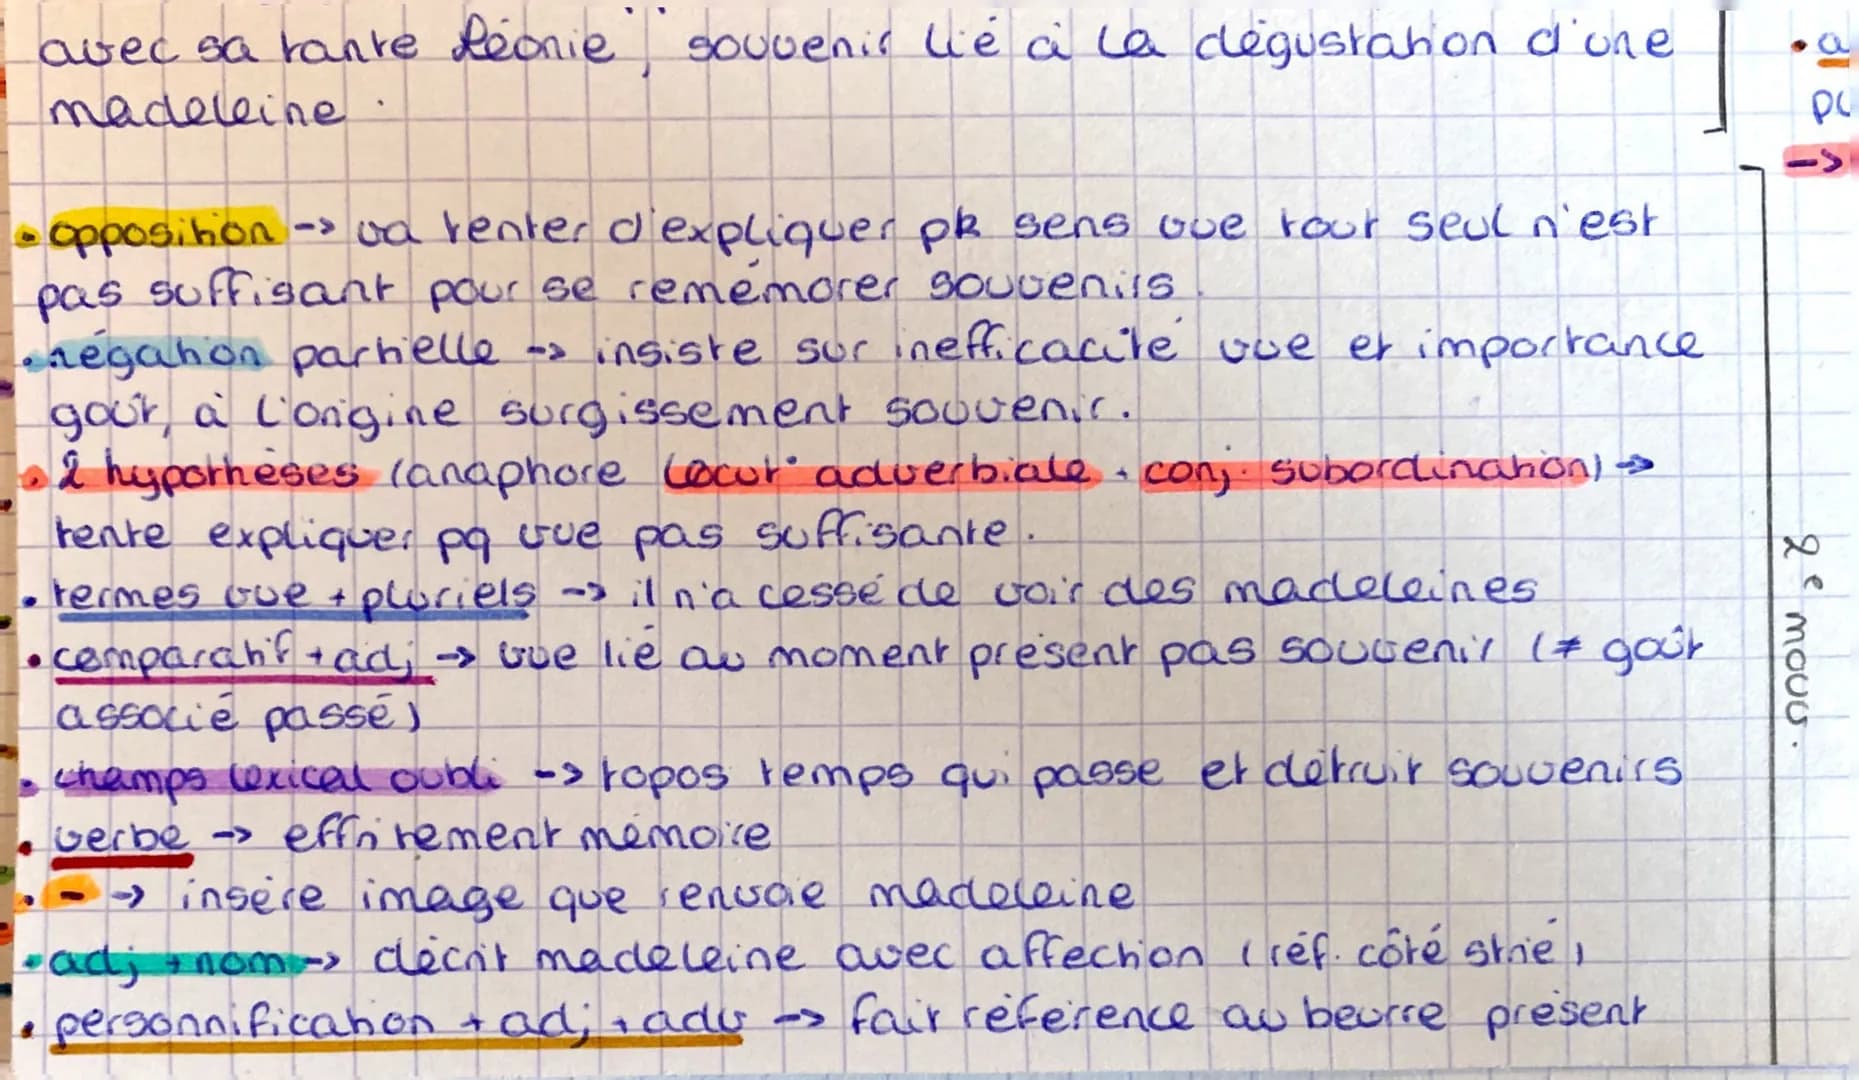 avec sa tante Léonie, souvenir lié à la dégustation d'une
madeleine.
• opposition -> va tenter d'expliquer pk sens vue tout seul n'est
pas suffisant pour se remémorer souvenirs.
• négation partielle -> insiste sur inefficacité vue et importance
goût, à l'origine surgissement souvenir.
• 2 hypothèses (anaphore locut° adverbiale + conj. subordination) ->
tente expliquer pq vue pas suffisante.
• termes vue + pluriels -> il n'a cessé de voir des madeleines
• comparatif + adj -> vue lié au moment présent pas souvenir (≠ goût
associé passé)
• champs lexical oubli -> topos temps qui passe et détruit souvenirs
• verbe -> effritement mémoire
• - -> insère image que renvoie madeleine
• adj + nom -> décrit madeleine avec affection (réf. côté strié)
• personnification + adj + adv -> fait référence au beurre présent
2e mouv.
• a
->